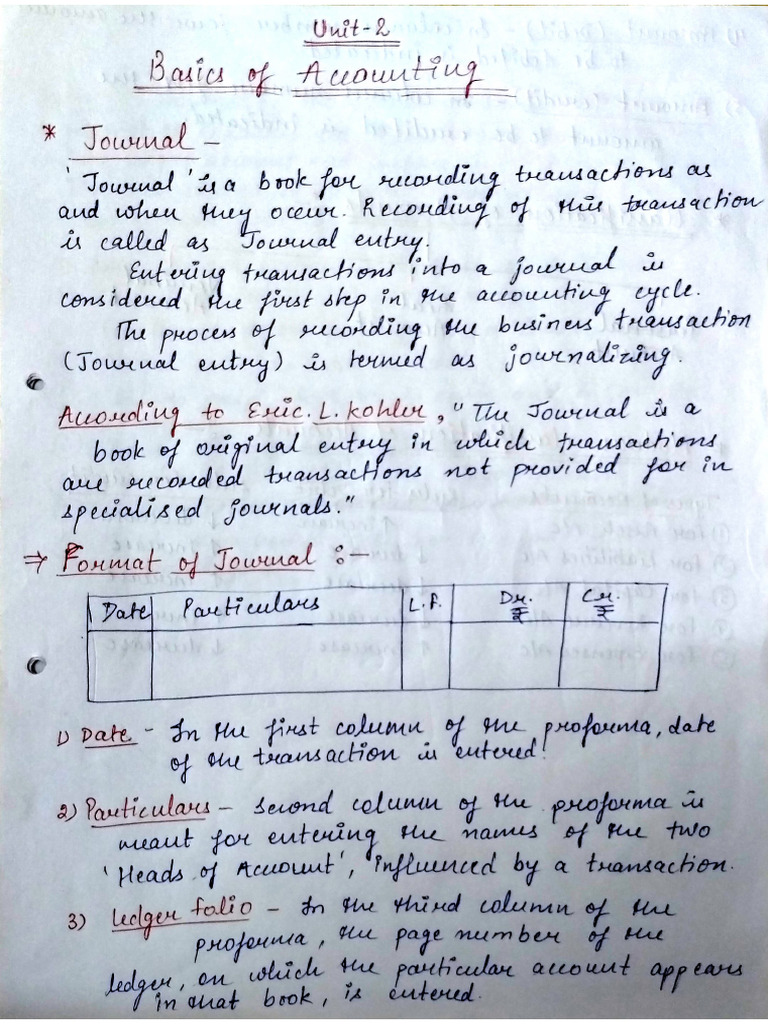 Unit-2
Basics of Accounting
* Journal -
'Journal' is a book for recording transactions as
and when they occur. Recording of this transaction
is called as Journal entry.
Entering transactions into a journal is
considered the first step in the accounting cycle.
The process of recording the business transaction
(Journal entry) is termed as journalizing.
According to Eric. L. Kohler, "The Journal is a
book of original entry in which transactions
are recorded transactions not provided for in
specialised journals."
⇒ Format of Journal :-
Date Particulars L.F. Dr. ₹ Cr. ₹
1) Date - In the first column of the proforma, date
of the transaction is entered.
2) Particulars - Second column of the proforma is
meant for entering the names of the two
'Heads of Account', influenced by a transaction.
3) Ledger folio - In the third column of the
proforma, the page number of the
ledger, on which the particular account appears
in that book, is entered.